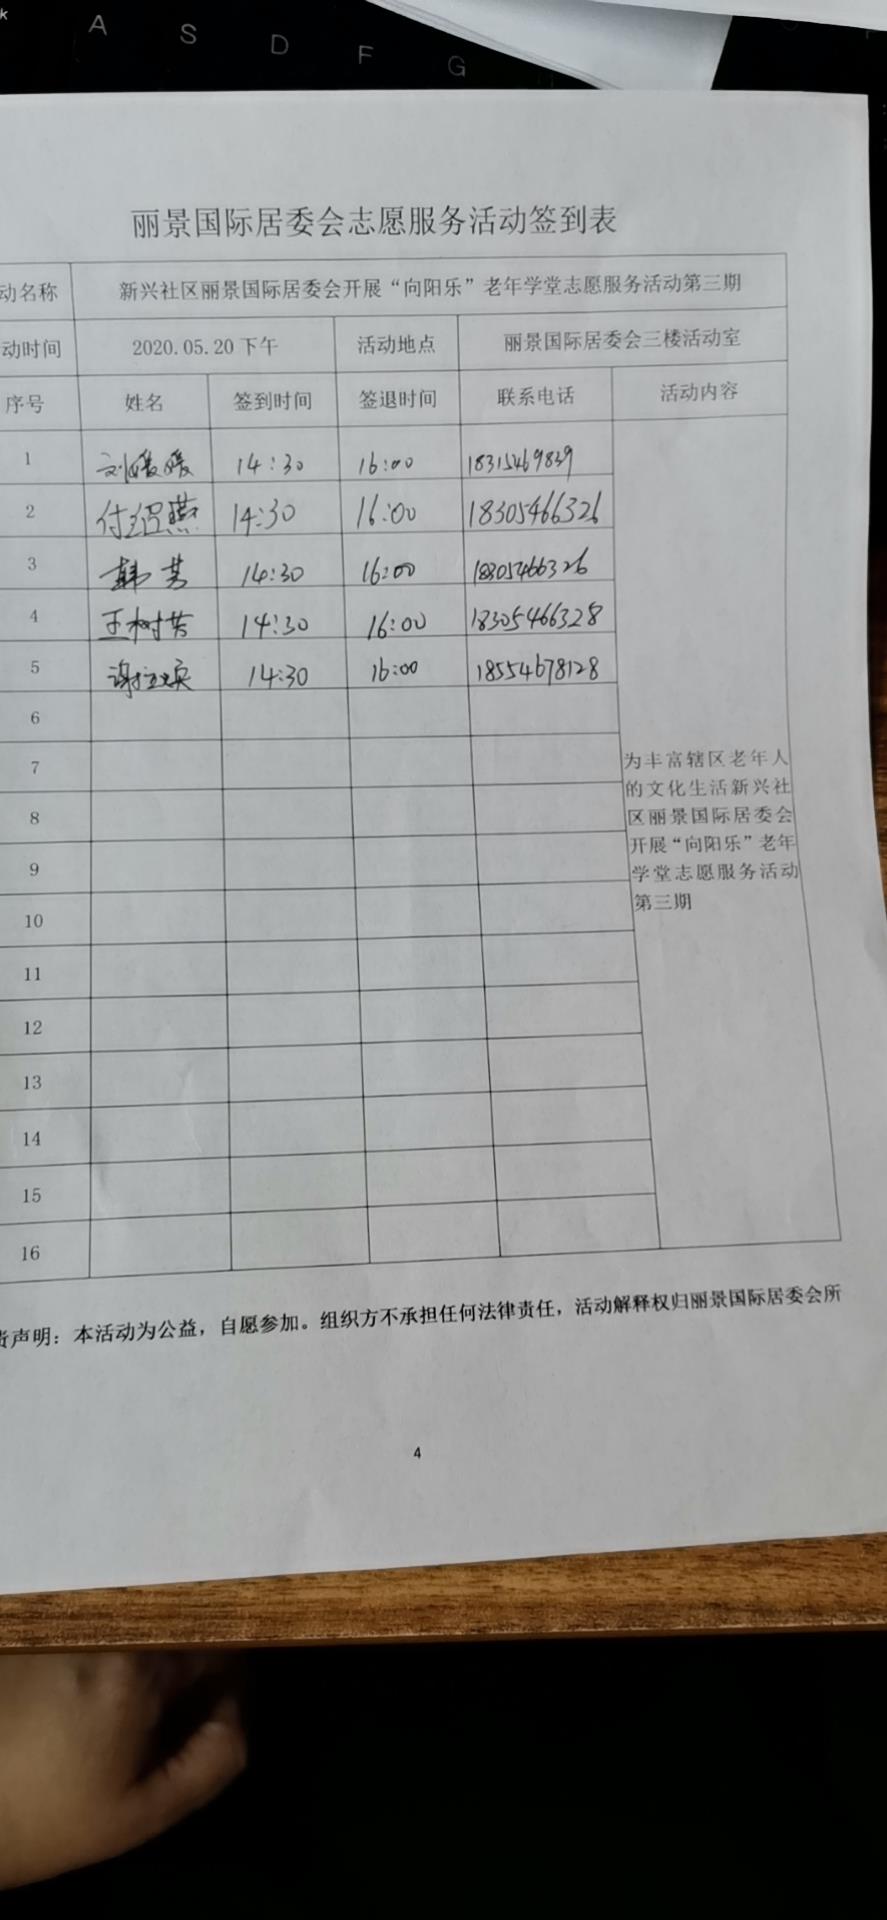 k
A S D F G
丽景国际居委会志愿服务活动签到表
动名称 新兴社区丽景国际居委会开展“向阳乐”老年学堂志愿服务活动第三期
动时间 2020.05.20下午 活动地点 丽景国际居委会三楼活动室
序号 姓名 签到时间 签退时间 联系电话 活动内容
1 刘媛媛 14:30 16:00 18315469839
2 付绍燕 14:30 16:00 18305466326
3 韩芳 14:30 16:00 18305466326
4 王树芳 14:30 16:00 18305466328
5 14:30 16:00 18554678128
6
7
8
9
10
11
12
13
14
15
16
为丰富辖区老年人
的文化生活新兴社
区丽景国际居委会
开展“向阳乐”老年
学堂志愿服务活动
第三期
责声明：本活动为公益，自愿参加。组织方不承担任何法律责任，活动解释权归丽景国际居委会所
4